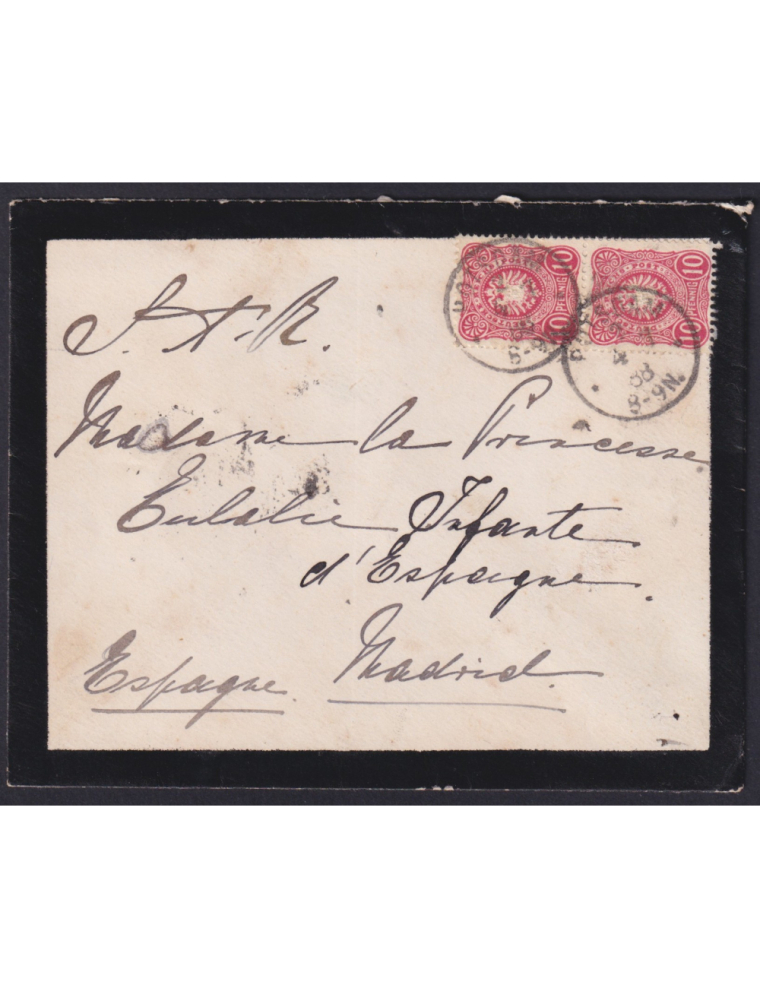 10 10
10 10
POTSDAM
88
8-9N.
S. A. R.
Madame la Princesse
Eulalie Infante
d'Espagne.
Espagne. Madrid.